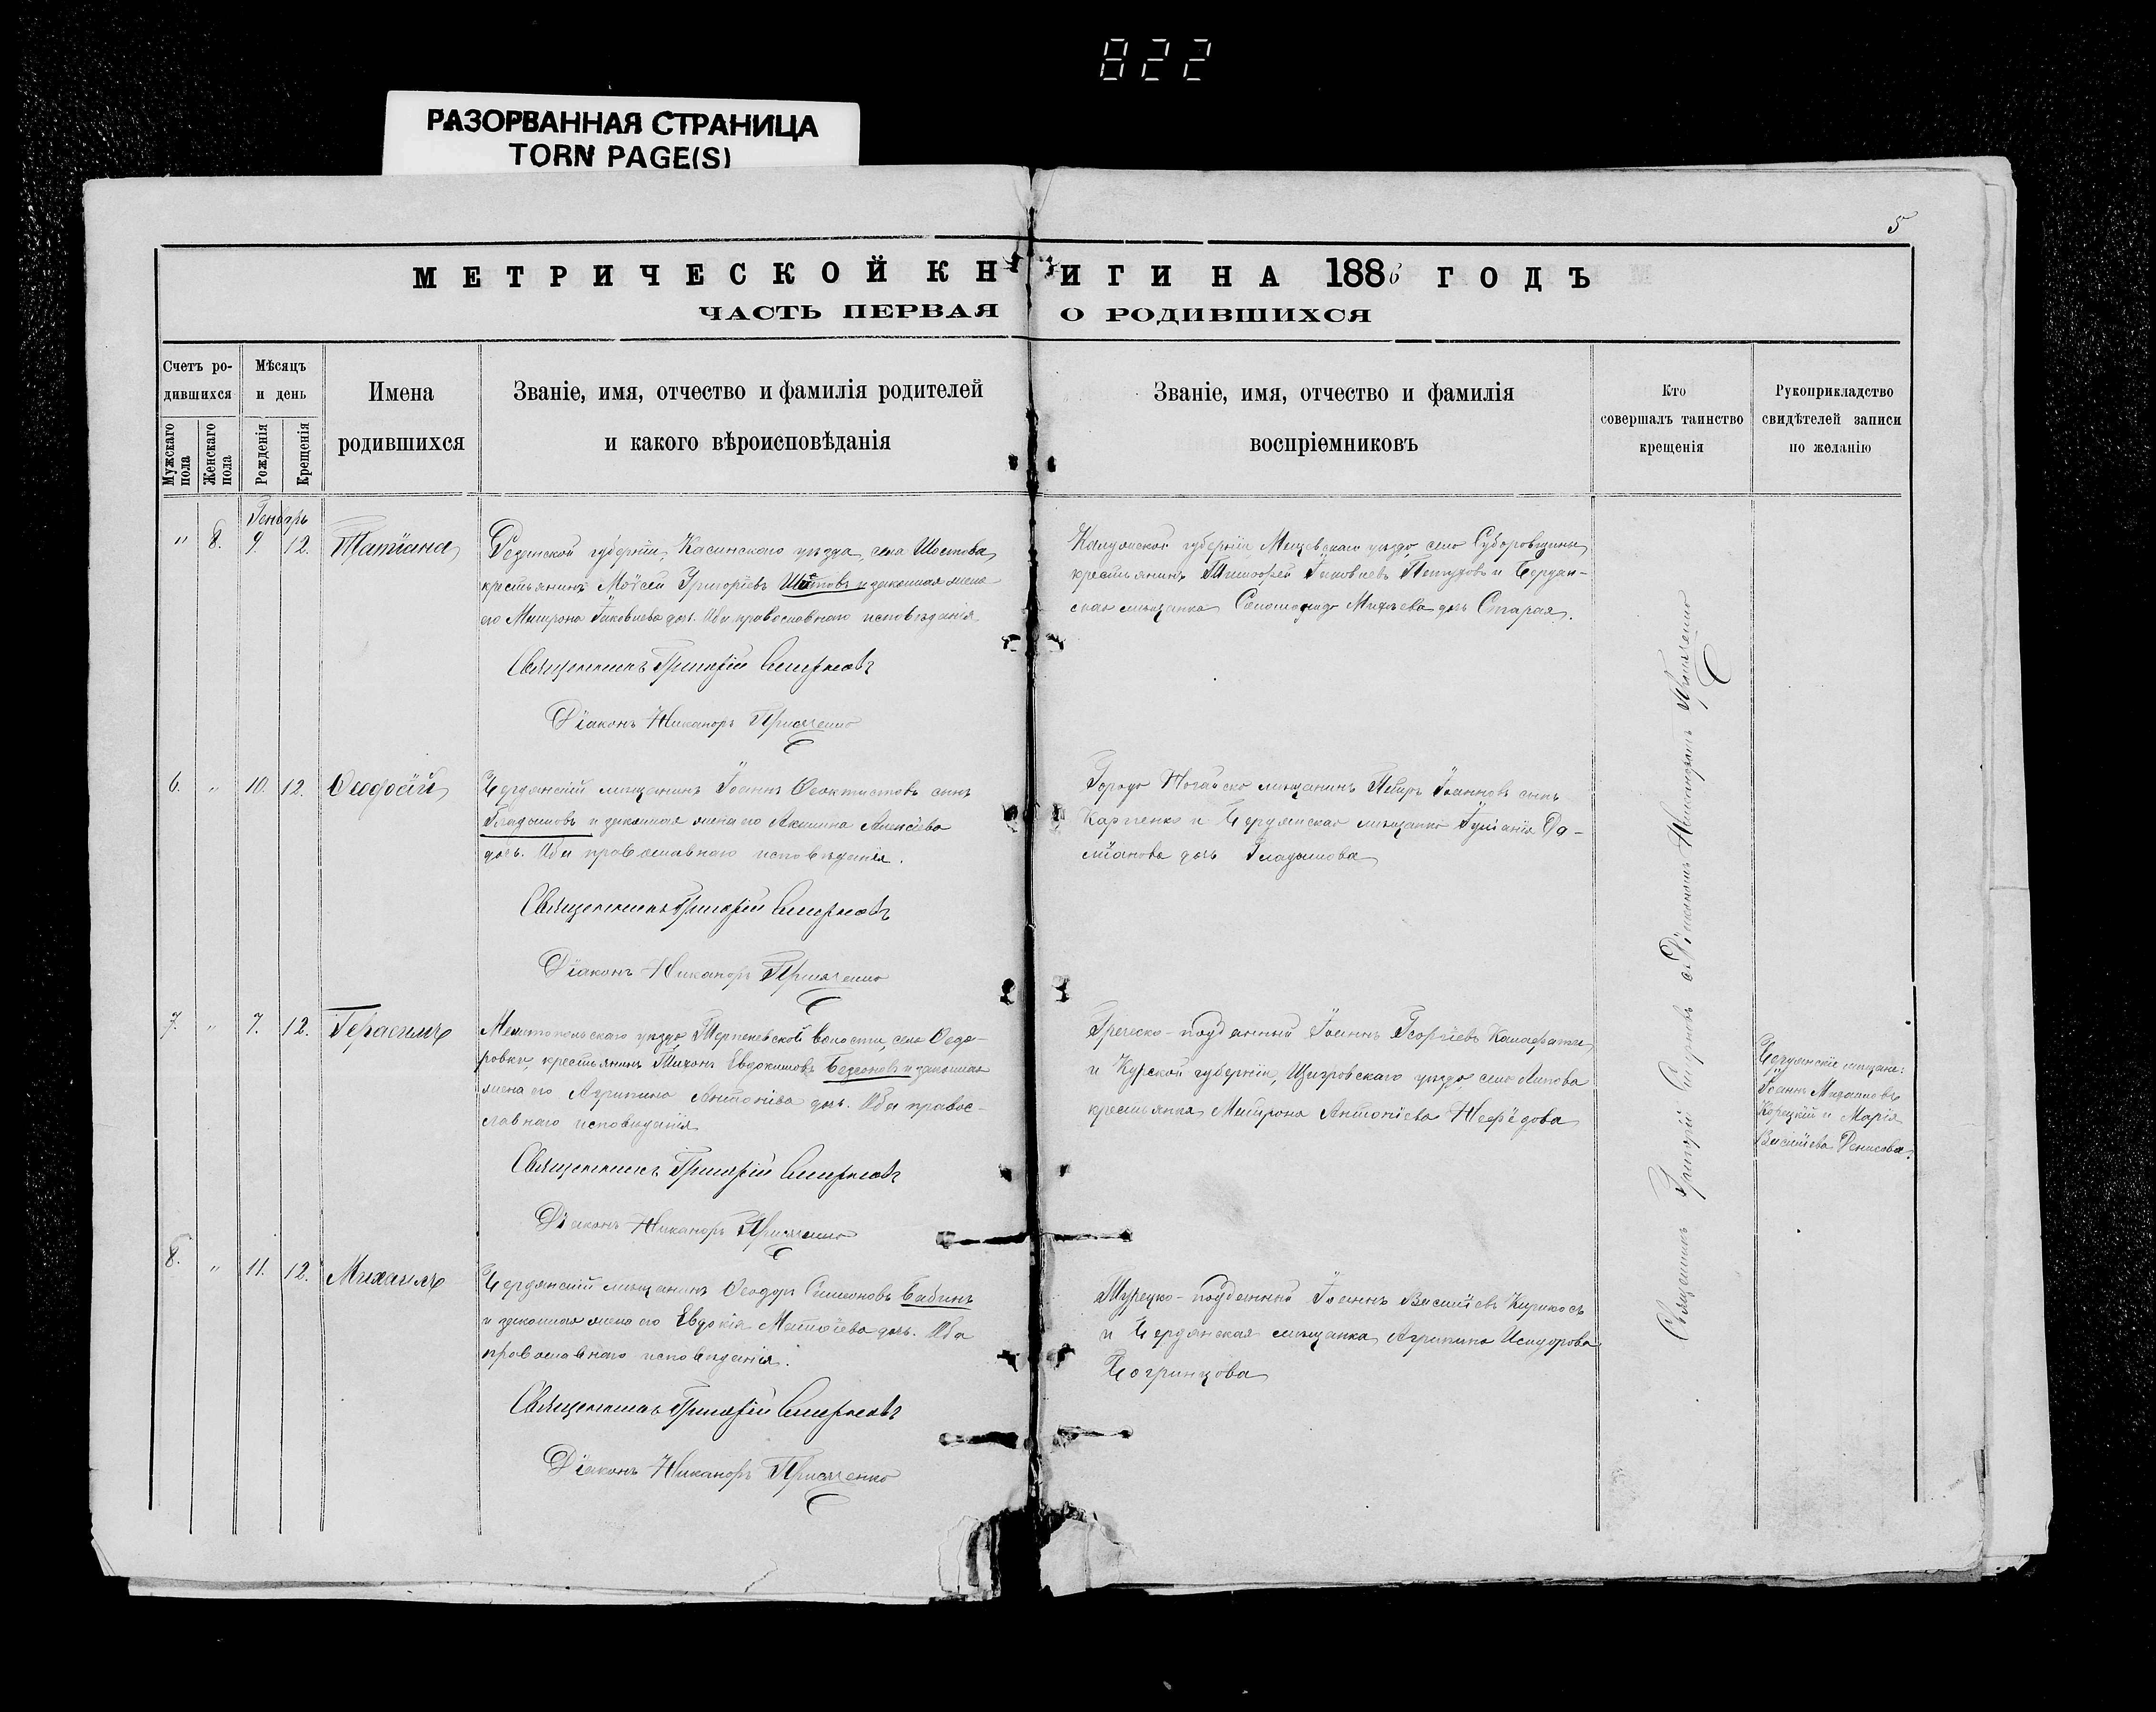 822
РАЗОРВАННАЯ СТРАНИЦА
TORN PAGE(S)
5
МЕТРИЧЕСКОЙ КНИГИ НА 1886 ГОДЪ
ЧАСТЬ ПЕРВАЯ О РОДИВШИХСЯ
Счетъ ро-
дившихся
Мужскаго пола
Женскаго пола
Мѣсяцъ
и день
Рожденія
Крещенія
Имена
родившихся
Званіе, имя, отчество и фамилія родителей
и какого вѣроисповѣданія
Званіе, имя, отчество и фамилія
воспріемниковъ
Кто
совершалъ таинство
крещенія
Рукоприкладство
свидѣтелей записи
по желанію
Генварь
" 8. 9. 12. Татіана
губерніи, Касимскаго уѣзда, села Шостова,
крестьянинъ Моѵсей Григоріевъ и законная жена
его Митрона Іаковлева дочь. Оба православнаго исповѣданія
Священникъ Григорій Смирновъ
Діаконъ Никаноръ
Калужской губерніи Мещовскаго уѣзда, село
крестьянинъ Тимофей Іаковлевъ и Бердян-
ская мѣщанка дочь Старая.
6. " 10. 12.
Бердянскій мѣщанинъ Іоаннъ Ѳеоктистовъ сынъ
Гладышовъ и законная жена его Акилина Алексіева
дочь. Оба православнаго исповѣданія.
Священникъ Григорій Смирновъ
Діаконъ Никаноръ
Города Ногайска мѣщанинъ Петръ Іоанновъ сынъ
Карпенко и Бердянская мѣщанка Іуліанія Да-
міанова дочь Гладышова
7. " 7. 12. Герасимъ
Мелитопольскаго уѣзда, Терпеневской волости, села Ѳедо-
ровки, крестьянинъ Тихонъ Евдокимовъ и законная
жена его Агрипина Антоніева дочь. Оба правос-
лавнаго исповѣданія
Священникъ Григорій Смирновъ
Діаконъ Никаноръ
Греческо-подданный Іоаннъ Георгіевъ Калафати
и Курской губерніи, Щигровскаго уѣзда село Липова
крестьянка Митрона Антоніева Нефёдова
Бердянскіе мѣщане:
Іоаннъ
Корецкій и Марія
Василіева Денисова.
8. " 11. 12. Михаилъ
Бердянскій мѣщанинъ Ѳеодоръ Симеоновъ Бабинъ
и законная жена его Евдокія Матѳіева дочь. Оба
православнаго исповѣданія.
Священникъ Григорій Смирновъ
Діаконъ Никаноръ
Турецко-подданный Іоаннъ Василіевъ Кирикосъ
и Бердянская мѣщанка Агрипина Исидорова
Богринцова
Священникъ Григорій Смирновъ съ Діакономъ Никаноромъ